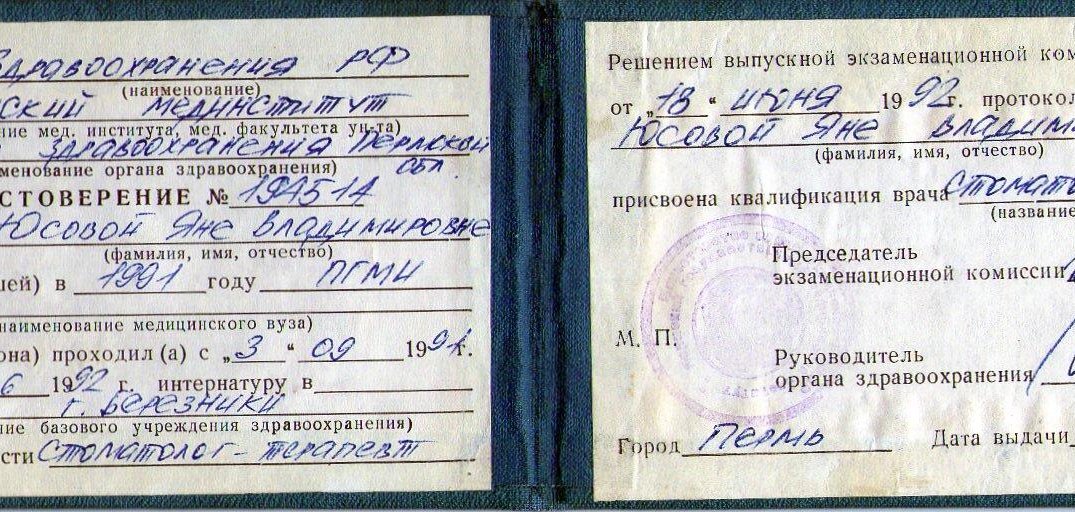 здравоохранения РФ
(наименование)
ский мединститут
ние мед. института, мед. факультета ун-та)
здравоохранения Пермской
обл.
менование органа здравоохранения)
СТОВЕРЕНИЕ № 194514
Юсовой Яне Владимировне
(фамилия, имя, отчество)
шей) в 1991 году ПГМИ
наименование медицинского вуза)
она) проходил (а) с „3“ 09 1991г.
6 1992 г. интернатуру в
г. Березники
ние базового учреждения здравоохранения)
сти Стоматолог-терапевт
Решением выпускной экзаменационной ком
от „18“ июня 1992г. протокол
Юсовой Яне Владими
(фамилия, имя, отчество)
присвоена квалификация врача Стомато
(название
Председатель
экзаменационной комиссии
М. П.
Руководитель
органа здравоохранения
Город Пермь Дата выдачи